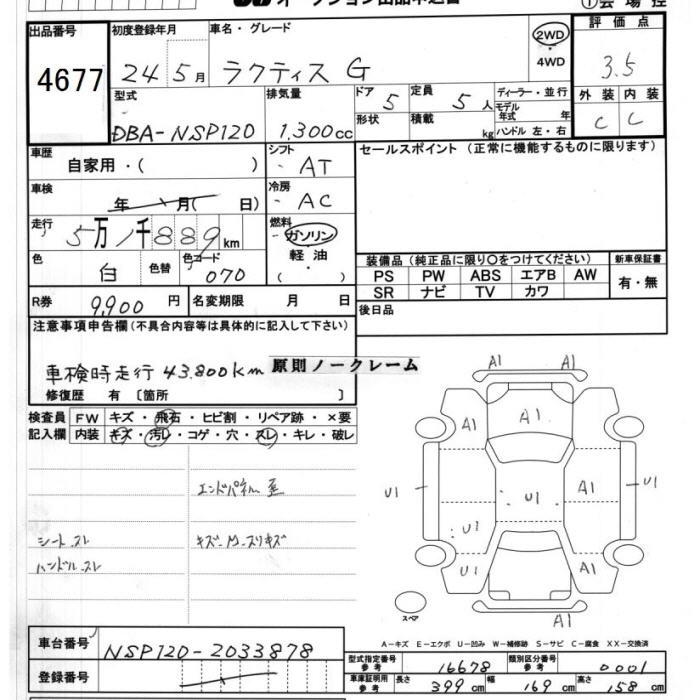 オークション出品申込書
①会場控
出品番号
4677
初度登録年月
24年5月
車名・グレード
ラクティス G
2WD
4WD
評価点
3.5
型式
DBA-NSP120
排気量
1.300cc
ドア
5
定員
5人
形状
積載
kg
ディーラー・並行
モデル年式 年
ハンドル 左・右
外装 内装
C C
車歴
自家用・( )
シフト
AT
セールスポイント (正常に機能するものに限ります)
車検
年 月( 日)
冷房
AC
走行
5万1千889km
燃料
ガソリン
軽油
( )
色
白
色替
色コード
070
装備品 (純正品に限り○をつけてください)
新車保証書
PS PW ABS エアB AW
有・無
SR ナビ TV カワ
R券
9,900円
名変期限 月 日
後日品
注意事項申告欄(不具合内容等は具体的に記入して下さい)
車検時走行 43.800km
原則ノークレーム
修復歴 有 〔箇所 〕
検査員
記入欄
FW キズ・飛石・ヒビ割・リペア跡・×要
内装 キズ・汚レ・コゲ・穴・スレ・キレ・破レ
エンドパネル 歪
シート スレ
キズ・M・スリキズ
ハンドル スレ
A1 A1
A1
A1
A1
U1
U1
A1
U1
U1
A1
U1
A1
A1
スペア
A-キズ E-エクボ U-凹み W-補修跡 S-サビ C-腐食 XX-交換済
車台番号
NSP120-2033878
登録番号
型式指定番号 参考
16678
類別区分番号 参考
0001
車庫証明用 参考
長さ 399cm
幅 169cm
高さ 158cm